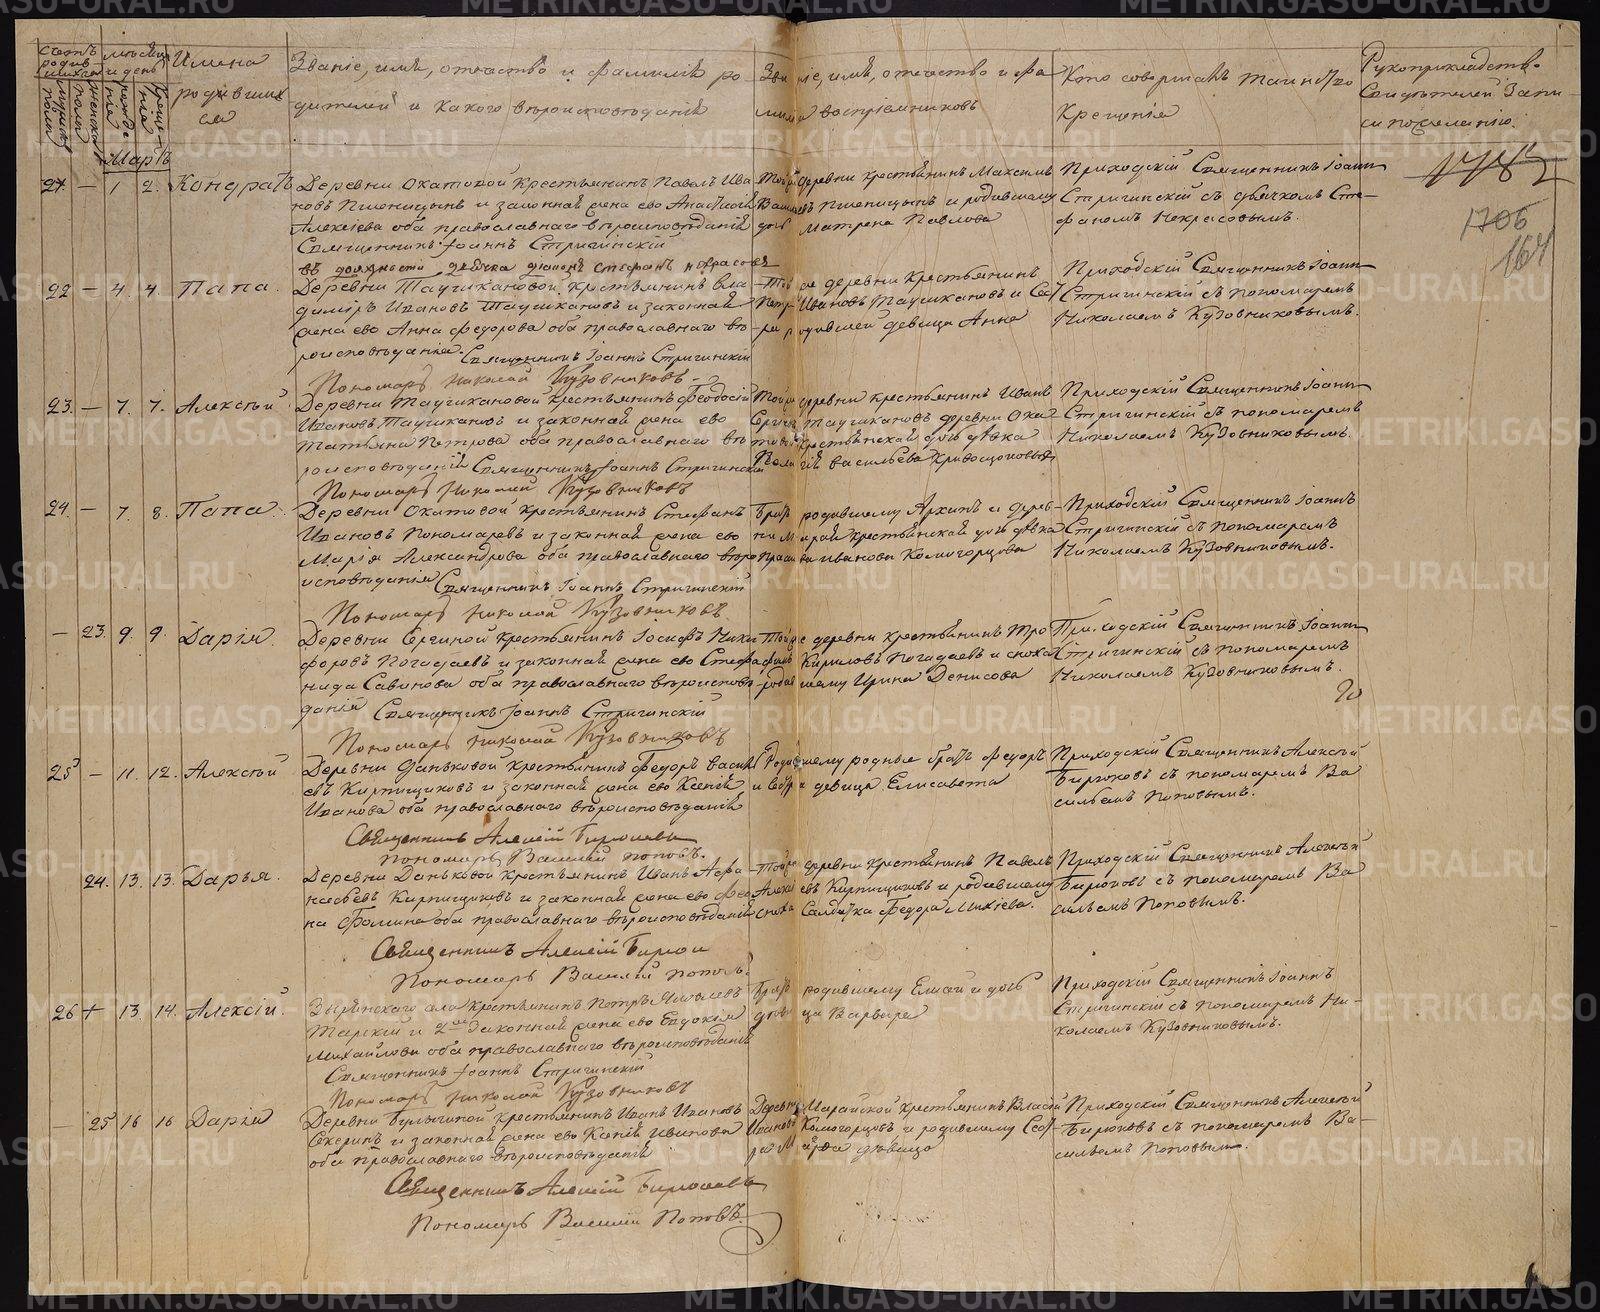 счетъ родив шихся
мѣсяц и день
Имена родивших ся
Званіе, имя, отчество и фамилія ро
дителей и какого вѣроисповѣданія
Званіе, имя, отчество и фа
милія воспріемниковъ
Кто совершалъ таинство
крещенія
Рукоприкладство
Свидѣтелей запи
си по желанію.
мужска пола
женска пола
рожде нія
креще нія
Мартъ
21. — 1 2. Кондратъ
Деревни Окатовой крестьянинъ Павелъ Ива
новъ Пшеницынъ и законная жена его Анастасія
Алексѣева оба православнаго вѣроисповѣданія
Священникъ Іоаннъ Стригинскій
въ должности дьячка дьяконъ Стефанъ Некрасовъ
Той же деревни крестьянинъ Максимъ
Пшеницынъ и родившему
дочь Матрена Павлова
Приходскій Священникъ Іоаннъ
Стригинскій с дьячкомъ Сте
фаномъ Некрасовымъ.
1706
164
22 — 4. 4. Папа.
Деревни Таушкановой крестьянинъ Вла
диміръ Ивановъ Таушкановъ и законная
жена его Анна Федорова оба православнаго вѣ
роисповѣданія. Священникъ Іоаннъ Стригинскій
Пономарь Николай Кузовниковъ
Той же деревни крестьянинъ
Петръ Ивановъ Таушкановъ и сест
ра родившей девица Анна
Приходскій Священникъ Іоаннъ
Стригинскій съ пономаремъ
Николаемъ Кузовниковымъ.
23. — 7. 7. Алексѣй
Деревни Таушкановой крестьянинъ Феодосій
Ивановъ Таушкановъ и законная жена его
Татьяна Петрова оба православнаго вѣ
роисповѣданія Священникъ Іоаннъ Стригинскій
Пономарь Николай Кузовниковъ
Той же деревни крестьянинъ Иванъ
Таушкановъ деревни Ока
товой крестьянская дочь дѣвка
Васильева Кривощокова
Приходскій Священникъ Іоаннъ
Стригинскій съ пономаремъ
Николаемъ Кузовниковымъ.
24. — 7. 8. Папа.
Деревни Окатовой крестьянинъ Стефанъ
Ивановъ Пономаревъ и законная жена его
Марія Александрова оба православнаго вѣро
исповѣданія Священникъ Іоаннъ Стригинскій
Пономарь Николай Кузовниковъ
Братъ родившему Архипъ и дерев
крестьянская дочь дѣвка
Иванова Комогорцова
Приходскій Священникъ Іоаннъ
Стригинскій съ пономаремъ
Николаемъ Кузовниковымъ.
— 23. 9. 9. Дарія.
Деревни Сергиной крестьянинъ Іосифъ Ники
форовъ Погадаевъ и законная жена его Стефа
нида Савинова оба православнаго вѣроисповѣ
данія Священникъ Іоаннъ Стригинскій
Пономарь Николай Кузовниковъ
Той же деревни крестьянинъ Тро
фимъ Кириловъ Погадаевъ и сноха
родившему Ирина Денисова
Приходскій Священникъ Іоаннъ
Стригинскій съ пономаремъ
Николаемъ Кузовниковымъ.
25 — 11. 12. Алексѣй
Деревни Даньковой крестьянинъ Федоръ Василь
евъ Кирпищиковъ и законная жена его Ксенія
Иванова оба православнаго вѣроисповѣданія
Священникъ Алексій Бирюковъ
пономарь Василій Поповъ.
Родившему родные братъ Федоръ
и сестра девица Елисавета
Приходскій Священникъ Алексѣй
Бирюковъ съ пономаремъ Ва
сильемъ Поповымъ.
24. 13. 13. Дарья.
Деревни Даньковой крестьянинъ Иванъ Афа
насьевъ Кирпищиковъ и законная жена его Фео
на Фомина оба православнаго вѣроисповѣданія
Священникъ Алексій Бирюк
Пономарь Василій Поповъ.
Той же деревни крестьянинъ Павелъ
Алексѣевъ Кирпищиковъ и родившему
сноха Салдатка Федора Михѣева.
Приходскій Священникъ Алексѣй
Бирюковъ съ пономаремъ Ва
сильемъ Поповымъ.
26 + 13. 14. Алексій.
Зырянскаго села крестьянинъ Петръ Яковлевъ
Тарскій и 2ая законная жена его Евдокія
Михайлова оба православнаго вѣроисповѣданія
Священникъ Іоаннъ Стригинскій
Пономарь Николай Кузовниковъ
Братъ родившему Елисей и дочь
девица Варвара
Приходскій Священникъ Іоаннъ
Стригинскій съ пономаремъ Ни
колаемъ Кузовниковымъ.
— 25 16 16 Дарія
Деревни Булыгиной крестьянинъ Иванъ Ивановъ
Секеринъ и законная жена его Ксенія Иванова
оба православнаго вѣроисповѣданія
Священникъ Алексій Бирюковъ
Пономарь Василій Поповъ.
Деревни Марайской крестьянинъ Власій
Ивановъ Комогорцовъ и родившему сест
ра Марфа дѣвица
Приходскій Священникъ Алексѣй
Бирюковъ съ пономаремъ Ва
сильемъ Поповымъ.
METRIKI.GASO-URAL.RU